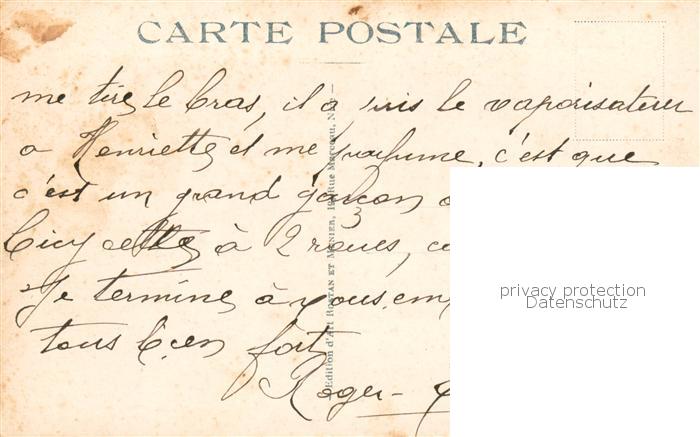 CARTE POSTALE
me tire le bras, il a pris le vaporisateur
a Henriette et me parfume, c'est que
c'est un grand garçon
3
bicyclette à 2 roues,
Je termine à vous
tous bien fort
Roger -
Edition d'Art ROSTAN ET MUNIER, Rue Marceau,
privacy protection
Datenschutz